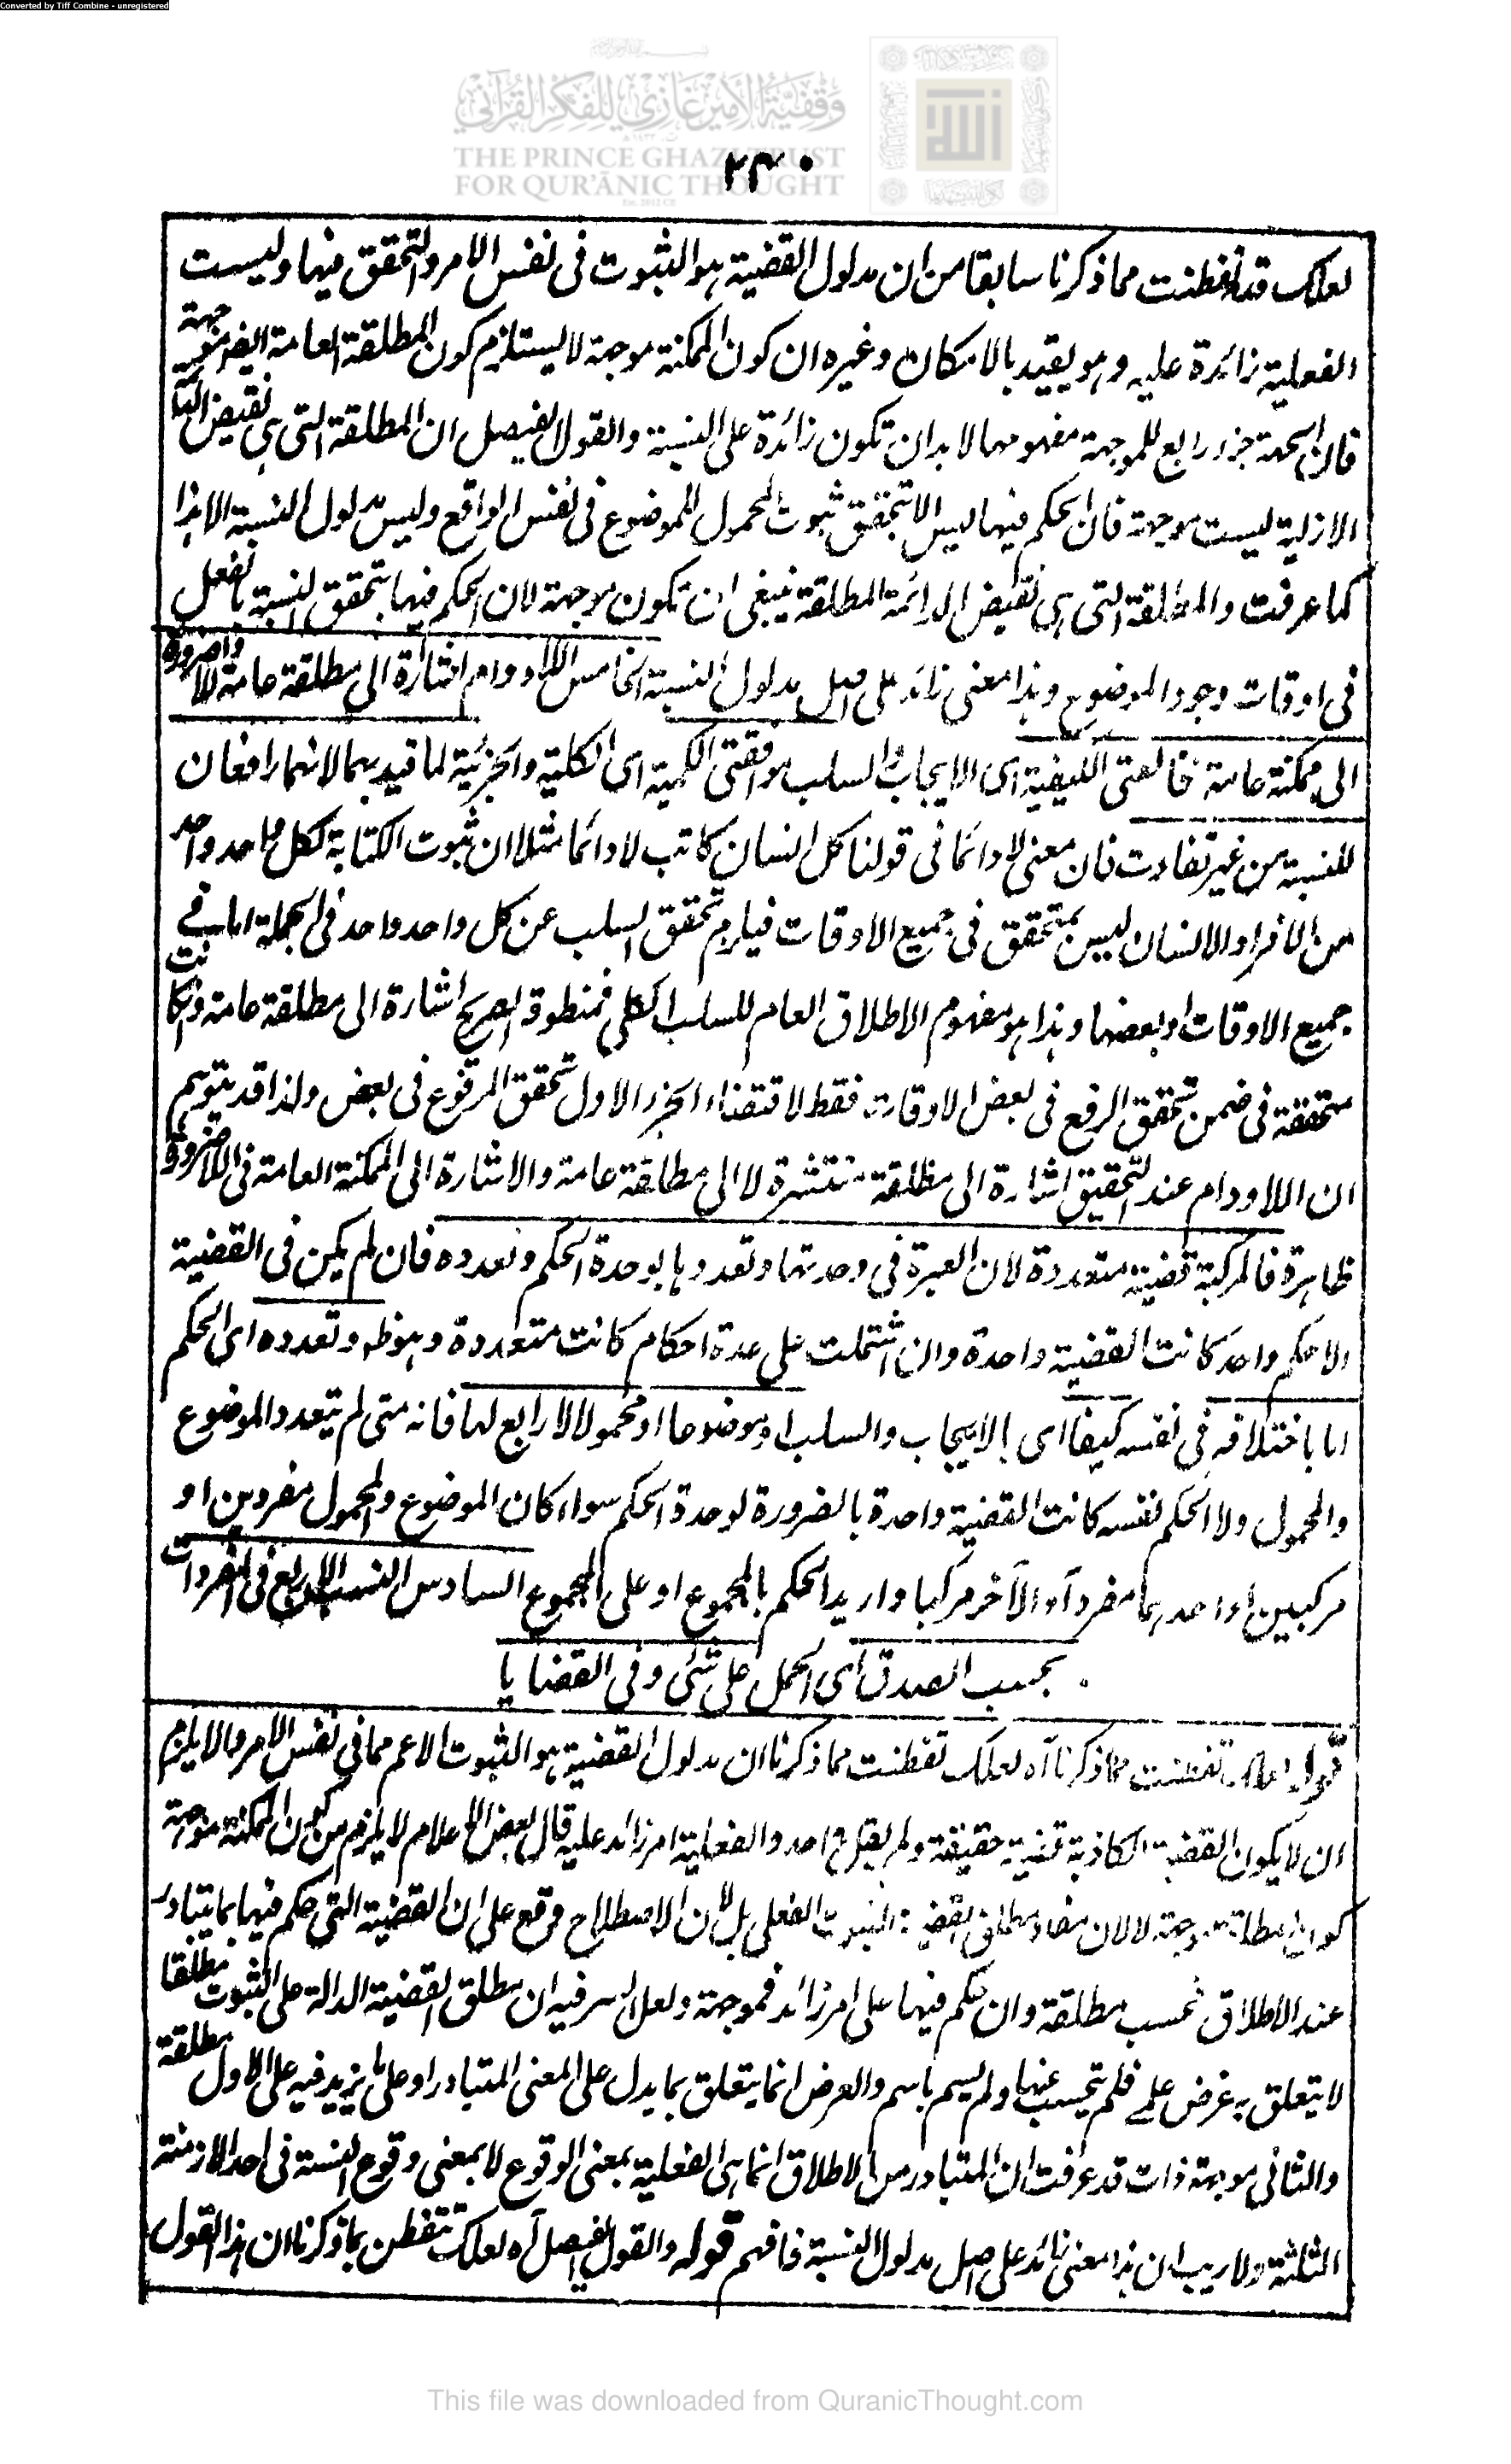 Converted by Tiff Combine - unregistered
وقفية الأمير غازي للفكر القرآني
THE PRINCE GHAZI TRUST
FOR QUR'ĀNIC THOUGHT
٢٣٠
لعلك قد تفطنت مما ذكرنا سابقا من ان مدلول القضية هو الثبوت فى نفس الامر والتحقق فيها وليست
الفعلية زائدة عليه وهو يقيد بالامكان وغيره ان كون الممكنة موجهة لا يستلزم كون المطلقة العامة ايضا موجهة
فان الجهة جزء رابع للموجهة مفهومها لا بد ان تكون زائدة على النسبة والقول الفيصل ان المطلقة التى هى نقيض الدائمة
الازلية ليست موجهة فان الحكم فيها ليس الا بتحقق ثبوت المحمول للموضوع فى نفس الواقع وليس مدلول النسبة الا هذا
كما عرفت والمطلقة التى هى نقيض الدائمة المطلقة ينبغى ان تكون موجهة لان الحكم فيها بتحقق النسبة بالفعل
فى اوقات وجود الموضوع وهذا معنى زائد على اصل مدلول النسبة الخامس اللادوام اشارة الى مطلقة عامة واللاضرورة
الى ممكنة عامة مخالفتى الكيفية اى الايجاب والسلب موافقتى الكمية اى الكلية والجزئية لما قيد بهما لانهما رافعان
للنسبة من غير تفاوت فان معنى لا دائما فى قولنا كل انسان كاتب لا دائما مثلا ان ثبوت الكتابة لكل واحد واحد
من الافراد الانسان ليس بمتحقق فى جميع الاوقات فيلزم تحقق السلب عن كل واحد واحد فى الجملة اما فى
جميع الاوقات او بعضها وهذا هو مفهوم الاطلاق العام للسلب الكلى فمنطوقه الصريح اشارة الى مطلقة عامة وان كانت
متحققة فى ضمن تحقق الرفع فى بعض الاوقات فقط لاقتضاء الجزء الاول تحقق المرفوع فى بعض ولذا قد يتوهم
ان اللادوام عند التحقيق اشارة الى مطلقة منتشرة لا الى مطلقة عامة والاشارة الى الممكنة العامة فى اللاضرورة
ظاهرة فالمركبة قضية متعددة لان العبرة فى وحدتها وتعددها بوحدة الحكم وتعدده فان لم يكن فى القضية
الا حكم واحد كانت القضية واحدة وان اشتملت على عدة احكام كانت متعددة وهو ظ وتعدده اى الحكم
اما باختلافه فى نفسه كيفا اى بالايجاب والسلب او موضوعا او محمولا لا رابع لها فانه متى لم يتعدد الموضوع
والمحمول ولا الحكم نفسه كانت القضية واحدة بالضرورة لوحدة الحكم سواء كان الموضوع والمحمول مفردين او
مركبين او احدهما مفردا والآخر مركبا واريد الحكم بالمجموع او على المجموع السادس النسب الاربع فى المفردات
بحسب الصدق اى الحمل على شئ وفى القضايا
قوله لعلك تفطنت مما ذكرنا آه لعلك تفطنت مما ذكرنا ان مدلول القضية هو الثبوت الاعم مما فى نفس الامر والا يلزم
ان لا يكون القضية الكاذبة قضية حقيقة ولم يقل به احد والفعلية امر زائد عليه قال بعض الاعلام لا يلزم من كون الممكنة موجهة
كون المطلقة موجهة لا لان مفاد مطلق القضية الثبوت الفعلى بل لان الاصطلاح وقع على ان القضية التى حكم فيها بما يتبادر
عند الاطلاق تحسب مطلقة وان حكم فيها على امر زائد فموجهة ولعل السر فيه ان مطلق القضية الدالة على الثبوت مطلقا
لا يتعلق به غرض علمى فلم تحسب عنها ولم يسم باسم والغرض انما يتعلق بما يدل على المعنى المتبادر او على ما يزيد فيه على الاول مطلقة
والثانى موجهة ذات قد عرفت ان المتبادر من الاطلاق انما هى الفعلية بمعنى الوقوع لا بمعنى وقوع النسبة فى احد الازمنة
الثلثة ولا ريب ان هذا معنى زائد على اصل مدلول النسبة فافهم قوله والقول الفيصل آه لعلك تتفطن بما ذكرنا ان هذا القول
This file was downloaded from QuranicThought.com